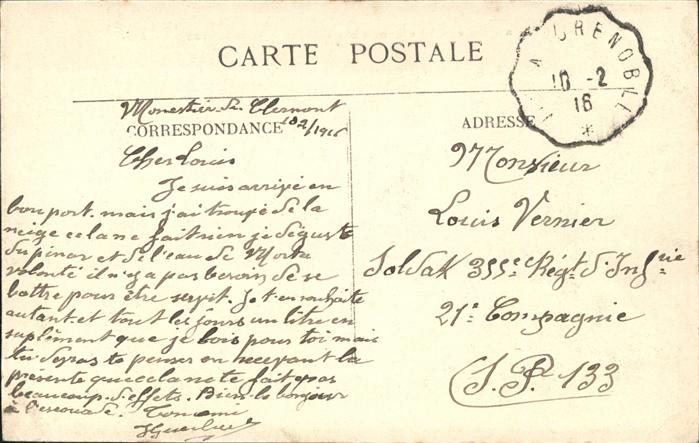 CARTE POSTALE
A GRENOBLE
10 -2
16
Monestier de Clermont
10 2/1916
CORRESPONDANCE
ADRESSE
Cher Louis
Je suis arrivé en
bon port. mais j'ai trouvé de la
neige cela ne fait rien je déguste
du pinar et de l'eau de
volonté il n'y a pas besoin de se
battre pour être servit. Je t'en souhaite
autant et tout les jours un litre en
suplément que je bois pour toi mais
tu devras te penser en recevant la
présente que cela ne te fait pas
beaucoup d'effets. Bien le bonjour
à l'escouade. Ton ami
Monsieur
Louis Vernier
Soldat 355e Régt d'Infrie
21e Compagnie
S.P. 133